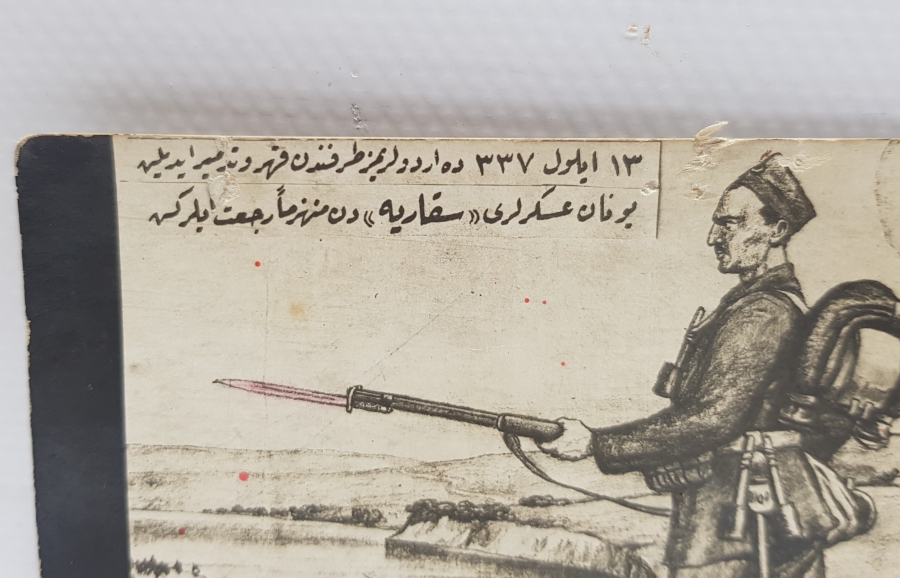 ١٣ ايلول ٣٣٧ ده اردولريمز طرفندن قهر و تدمير ايديلن
يونان عسكرلرى «سقاريه» دن منهزماً رجعت ايلركن